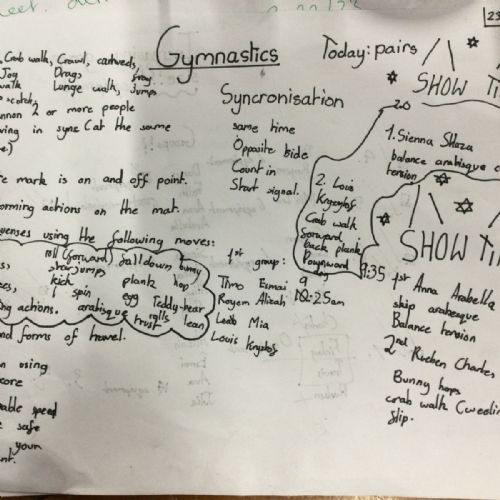 Gymnastics
Crab walk, Crawl, cartweels,
Jog Drags, frog
walk Lunge walk, jumps
2 or more people
in sync (at the same
mark is on and off point.
actions on the mat.
using the following moves:
roll (forward) fall down bunny
star jumps plank hop
kick
spin egg Teddy-bear
actions. arabisque rolls
trust lean
and forms of travel.
using
core
able speed
safe
your
Synchronisation
same time
Opposite side
Count in
Start signal.
1st group:
Timo Esmai 9
Rayem Alizah 10:25am
Mia
Louis Krystos
Today: pairs
SHOW TI
20
1. Sienna Shaza
balance arabisque
tension
2. Louis
Krystos
Crab walk
forward
back plank
Downward
dog
SHOW TI
9:35
1st Anna Arabella
skip arabesque
Balance tension
2nd Ruben Charles
Bunny hops
crab walk
flip.